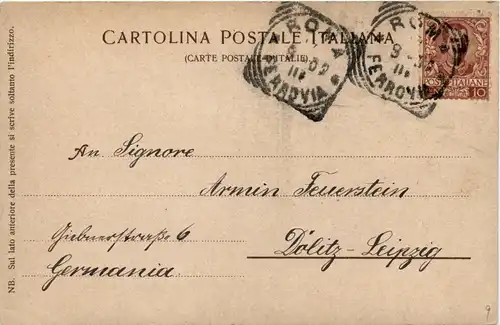 CARTOLINA POSTALE ITALIANA
(CARTE POSTALE D'ITALIE)
ROMA
FERROVIA
ROMA
FERROVIA
POSTE ITALIANE
10
An Signore
Armin Feuerstein
Giebnerstraße 6
Dölitz-Leipzig
Germania.
NB. Sul lato anteriore della presente si scrive soltanto l'indirizzo.
9